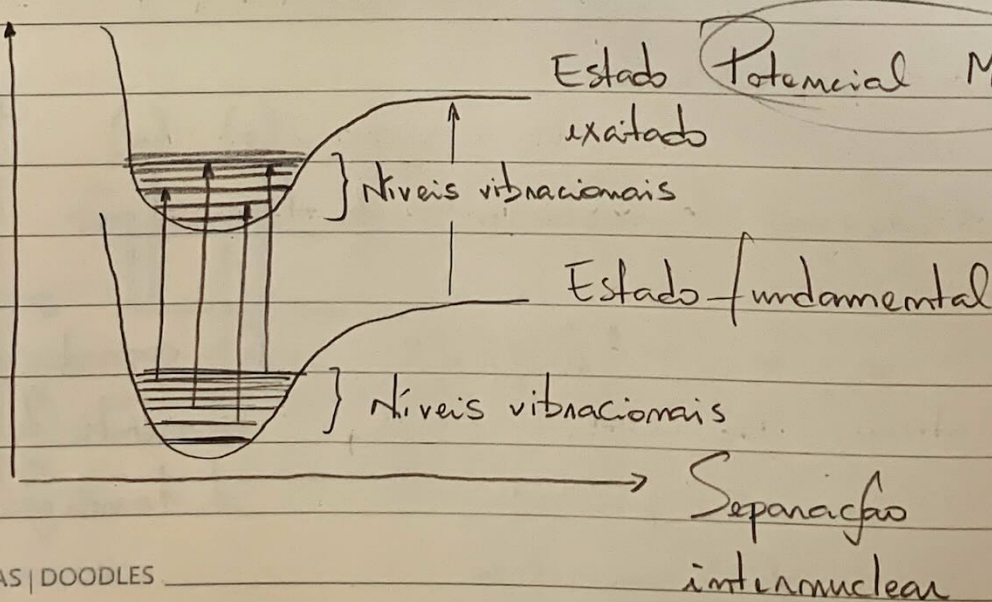 Estado Potencial M
exitado
Níveis vibracionais
Estado fundamental
Níveis vibracionais
Separação
internuclear
AS | DOODLES